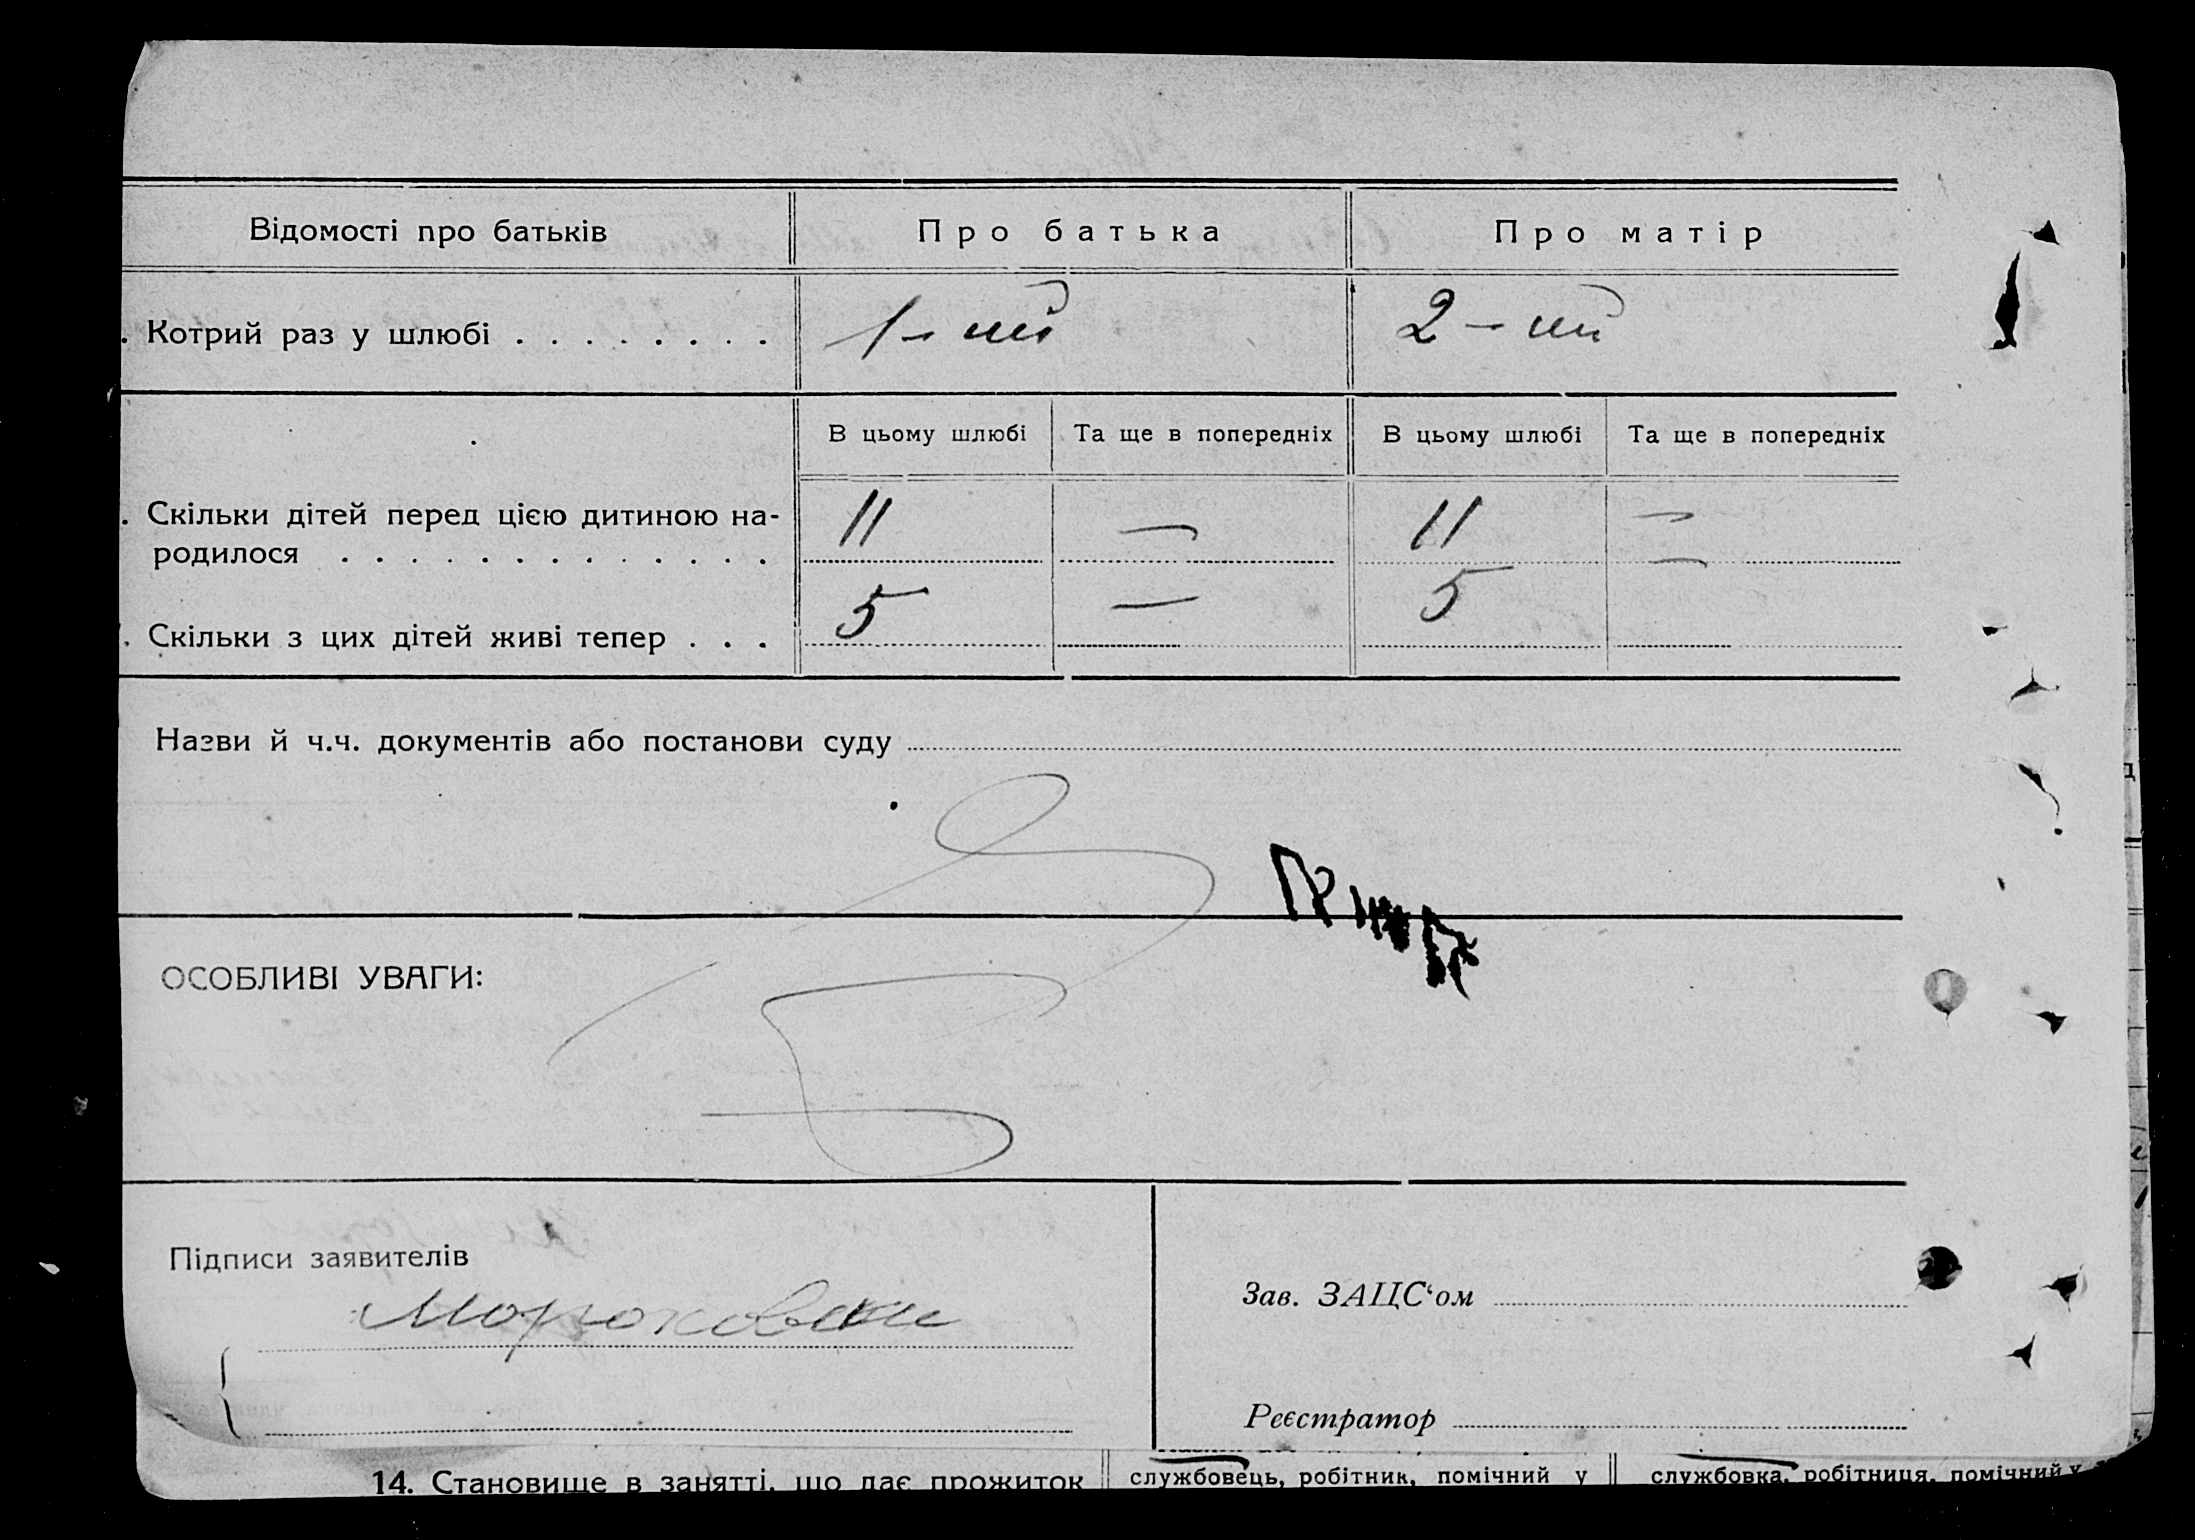 Відомості про батьків Про батька Про матір
. Котрий раз у шлюбі . . . . . . . . 1-ий 2-ий
В цьому шлюбі Та ще в попередніх В цьому шлюбі Та ще в попередніх
. Скільки дітей перед цією дитиною на- 11 — 11 —
родилося . . . . . . . . . . . . . —
. Скільки з цих дітей живі тепер . . . 5 — 5
Назви й ч.ч. документів або постанови суду
ОСОБЛИВІ УВАГИ:
Підписи заявителів
Зав. ЗАЦС‘ом
Реєстратор
14. Становище в занятті, що дає прожиток службовець, робітник, помічний у службовка, робітниця, помічний у